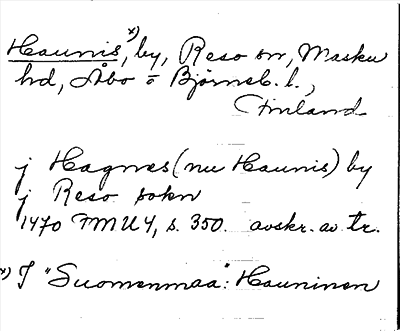 Haunis, x) by, Reso sn, Masku
hd, Åbo o Björneb. l.,
Finland
j Hagnæs (nu Haunis) by
j Reso sokn
1470 FMU 4, s. 350. avskr. av tr.
x) I "Suomenmaa": Hauninen